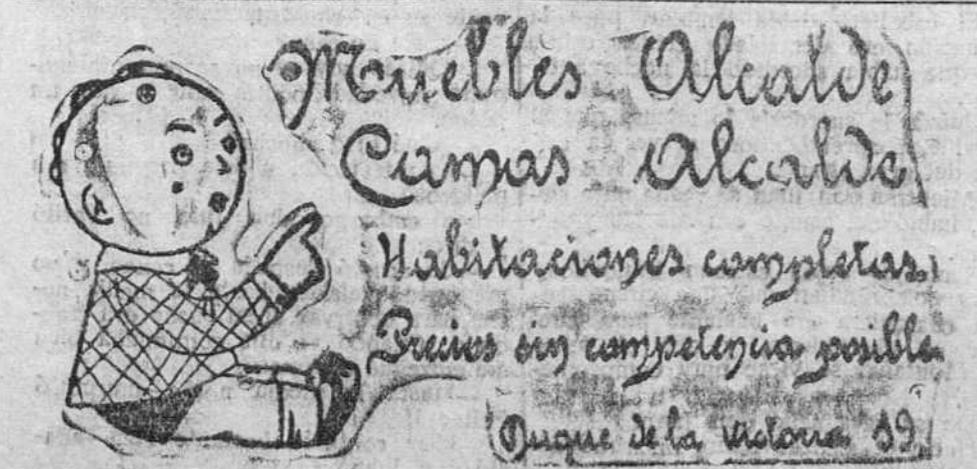 Muebles Alcalde
Camas Alcalde
Habitaciones completas.
Precios sin competencia posible.
Duque de la Victoria 19